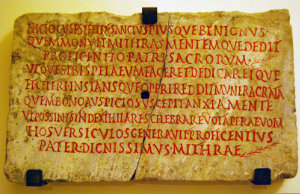 HIC LOCVS EST FELIX SANCTVS PIVSQVE BENIGNVS
QVEM MONVIT MITHRAS MENTEMQVE DEDIT
PROFICENTIO PATRI SACRORVM
VTQVE SIBI SPELEVM FACERET DEDICARETQVE
ET CELERI INSTANSQVE OPERI REDDIT MVNERA GRATA
QVEM BONO AVSPICIO SVSCEPIT ANXIA MENTE
VT POSSINT SYNDEXI HILARES CELEBRARE VOTA PER AEVOM
HOS VERSICVLOS GENERAVIT PROFICENTIVS
PATER DIGNISSIMVS MITHRAE